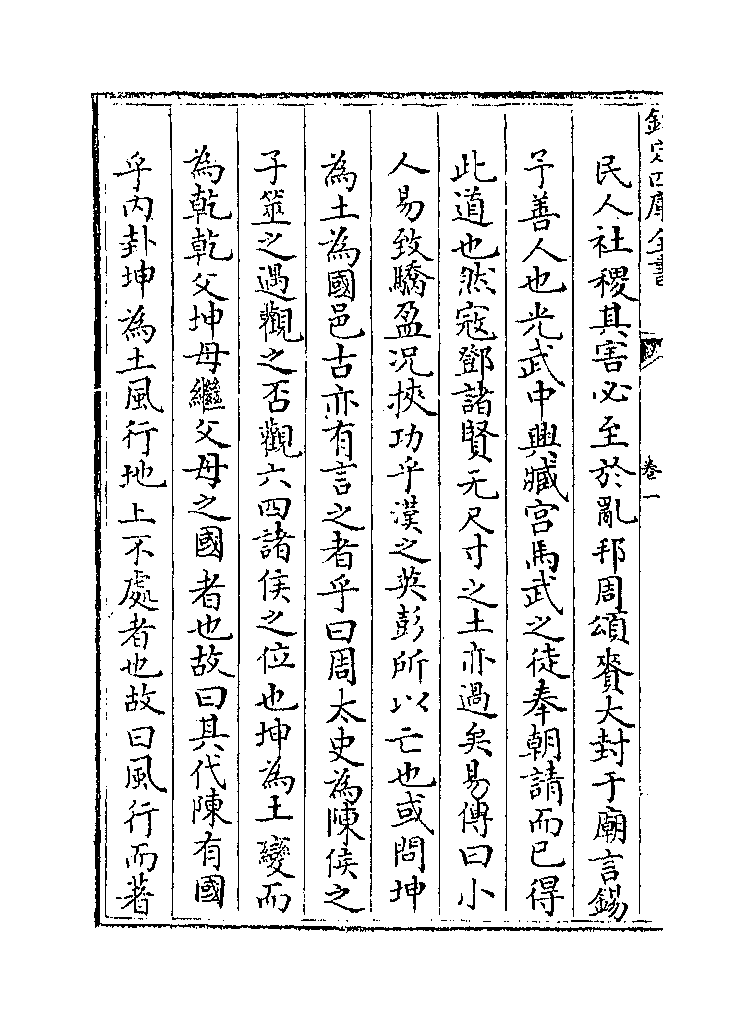 欽定四庫全書
卷一
民人社稷其害必至於亂邦周頌賚大封于廟言錫
予善人也光武中興臧宮馬武之徒奉朝請而已得
此道也然寇鄧諸賢无尺寸之土亦過矣易傳曰小
人易致驕盈况挾功乎漢之英彭所以亡也或問坤
為土為國邑古亦有言之者乎曰周太史為陳侯之
子筮之遇觀之否觀六四諸侯之位也坤為土變而
為乾乾父坤母繼父母之國者也故曰其代陳有國
乎內卦坤為土風行地上不處者也故曰風行而著